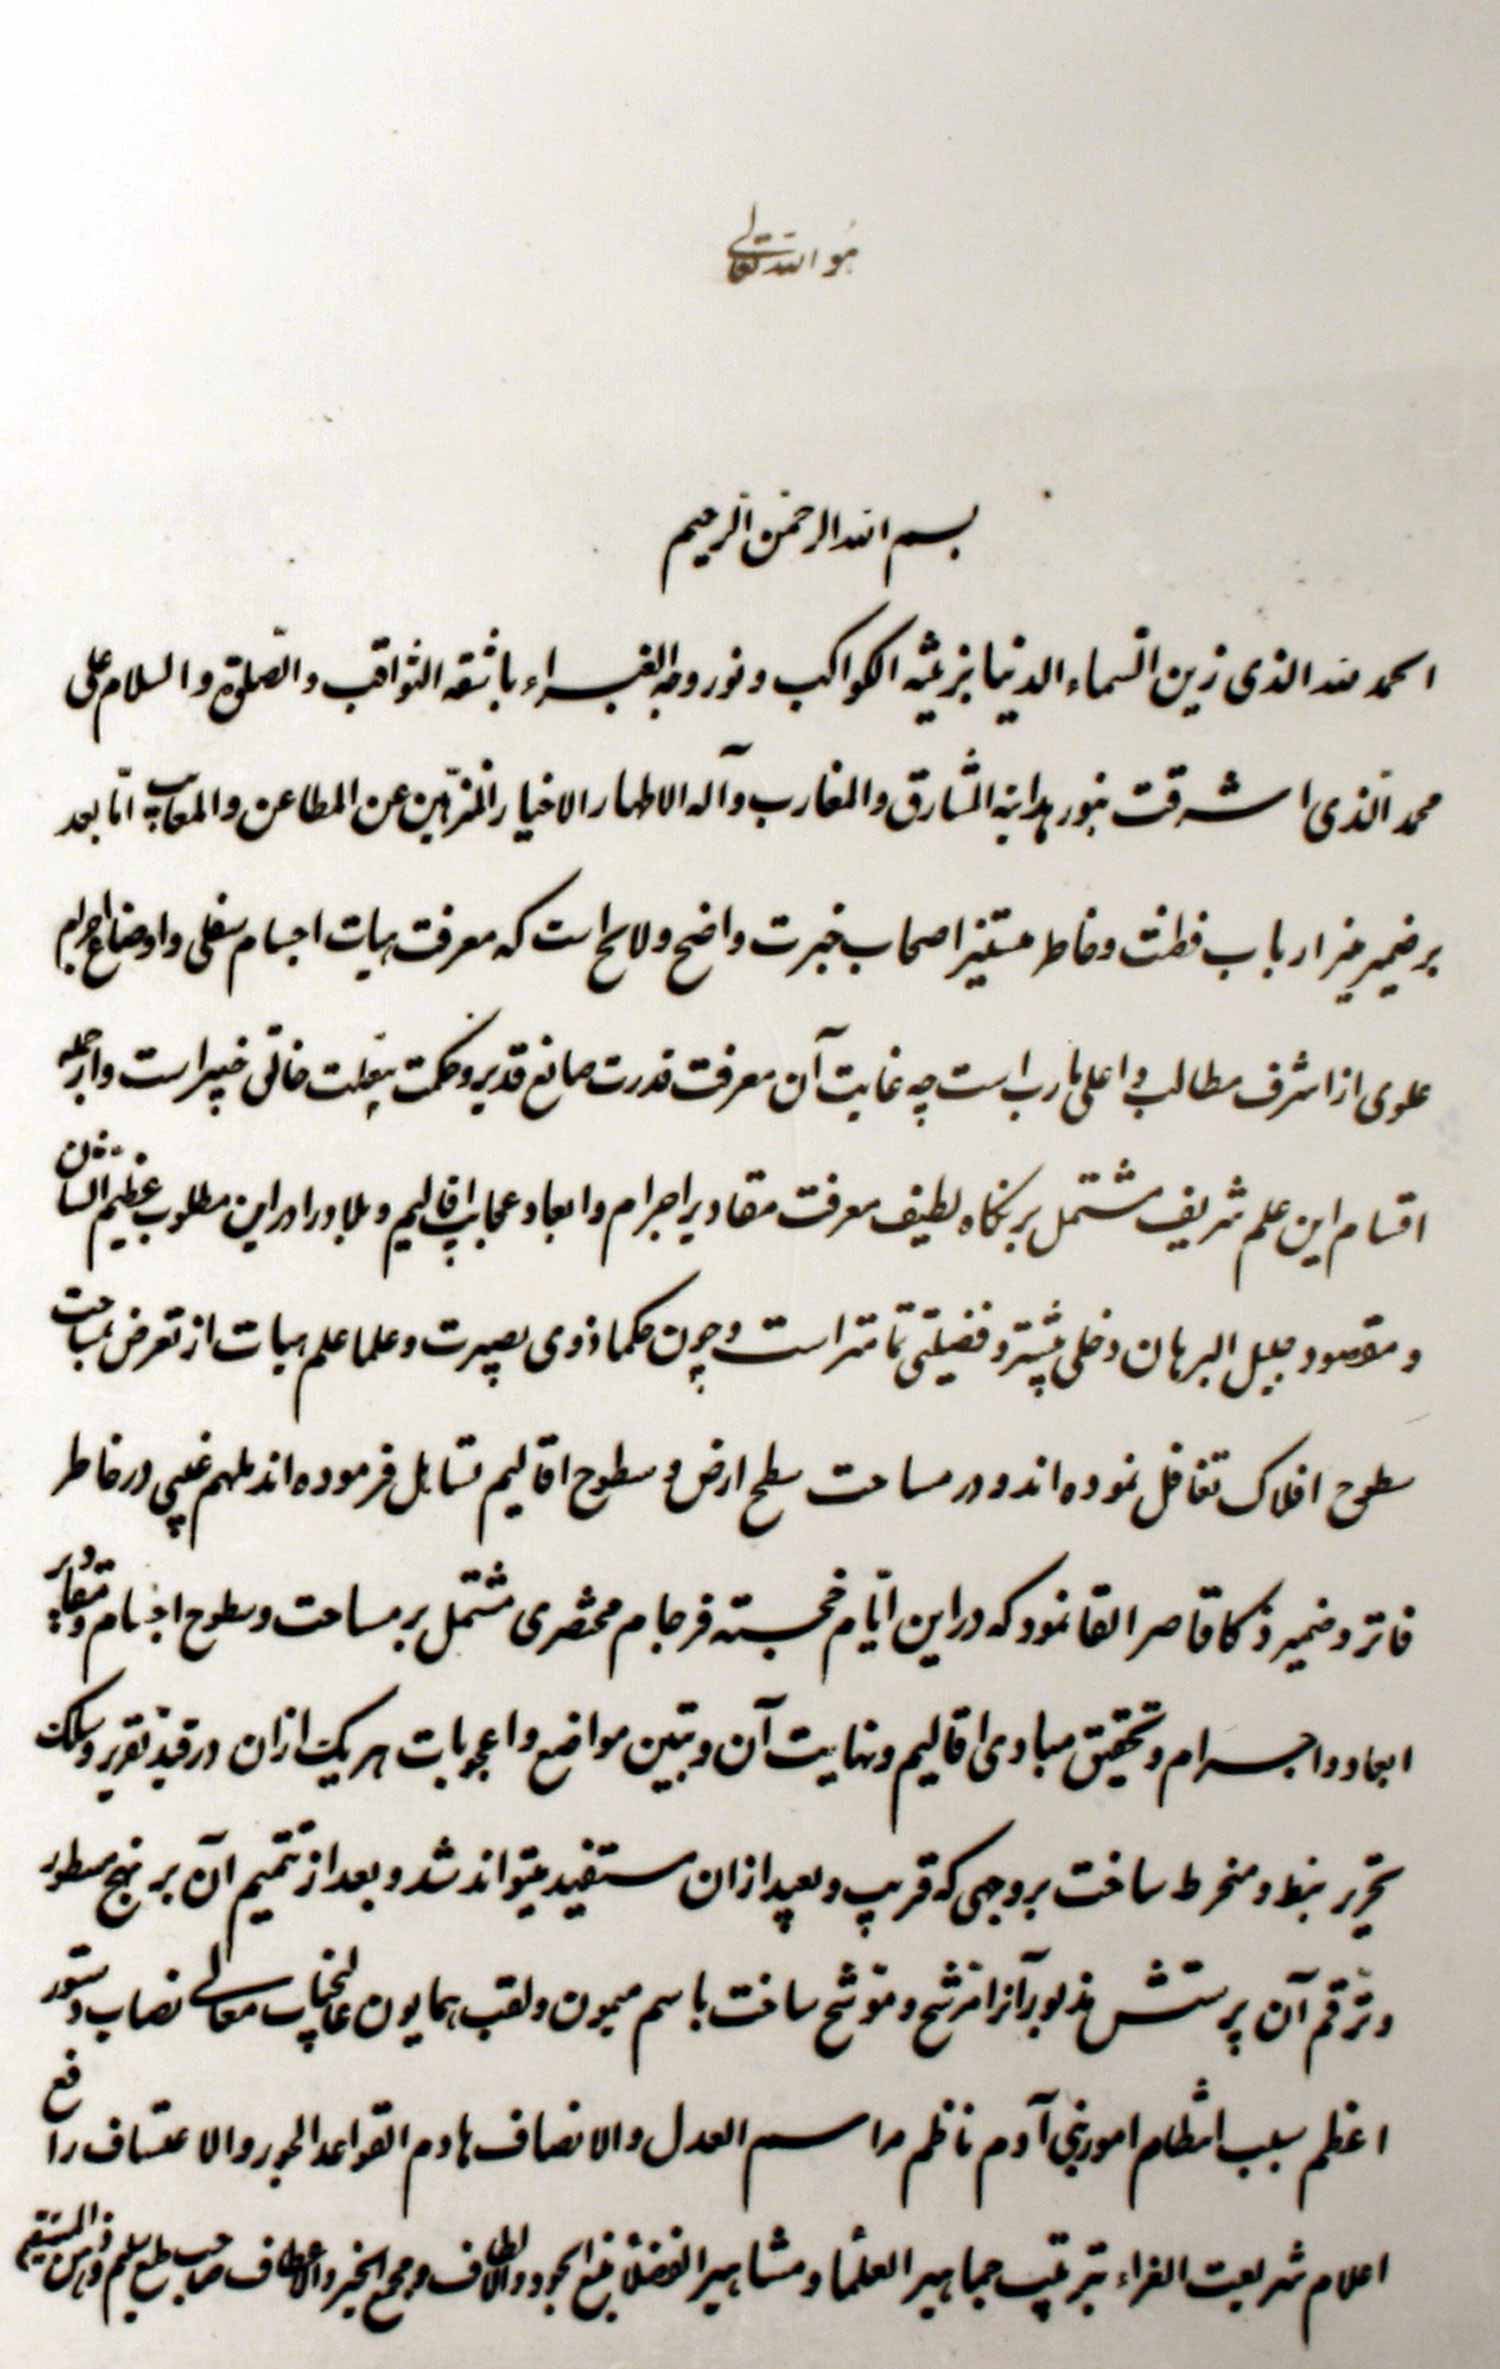 هو الله تعالی
بسم الله الرحمن الرحیم
الحمد لله الذی زین السماء الدنیا بزینة الکواکب و نور وجه الغبراء باشعة الثواقب و الصلوة و السلام علی
محمد الذی اشرقت بنور هدایته المشارق و المغارب و آله الاطهار الاخیار المنزهین عن المطاعن و المعایب اما بعد
بر ضمیر منیر ارباب فطنت و خاطر مستنیر اصحاب خبرت واضح و لایح است که معرفت هیات اجسام سفلی و اوضاع اجرام
علوی از اشرف مطالب و اعلی مارب است چه غایت آن معرفت قدرت صانع قدیر و حکمت خالق خبیر است و از جمله
اقسام این علم شریف مشتمل بر نکاه لطیف معرفت مقادیر اجرام و ابعاد و عجایب اقالیم و بلاد را در این مطلوب عظیم الشان
و مقصود جلیل البرهان دخلی بیشتر و فضیلتی تمامتر است و چون حکما ذوی بصیرت و علما علم هیات از تعرض بمساحت
سطوح افلاک تغافل نموده اند و در مساحت سطح ارض و سطوح اقالیم تساهل فرموده اند ملهم غیبی در خاطر
فاتر و ضمیر ذکا قاصر القا نمود که در این ایام خجسته فرجام مختصری مشتمل بر مساحت و سطوح اجسام و مقادیر
ابعاد و اجرام و تحقیق مبادی اقالیم و نهایت آن و تبین مواضع و اعجوبات هر یک از ان در قید تقریر و سلک
تحریر منخرط ساخت بر وجهی که قریب و بعید از ان مستفید میتواند شد و بعد از تتمیم آن بر نهج مسطور
و ترقم آن پرستش مذبور آنرا مترشح و موشح ساخت باسم میمون و لقب همایون عالیجناب معالی نصاب دستور
اعظم سبب انتظام امور بنی آدم ناظم مراسم العدل و الانصاف هادم القواعد الجور و الاعتساف رافع
اعلام شریعت الغراء بترتیب جماهیر العلما و مشاهیر الفضلا منبع الجود و الالطاف و مجمع الخیر و الاعطاف صاحب طبع سلیم و ذهن المستقیم